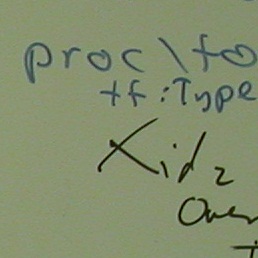 proc\fo
tf:Type
Xid2
Over